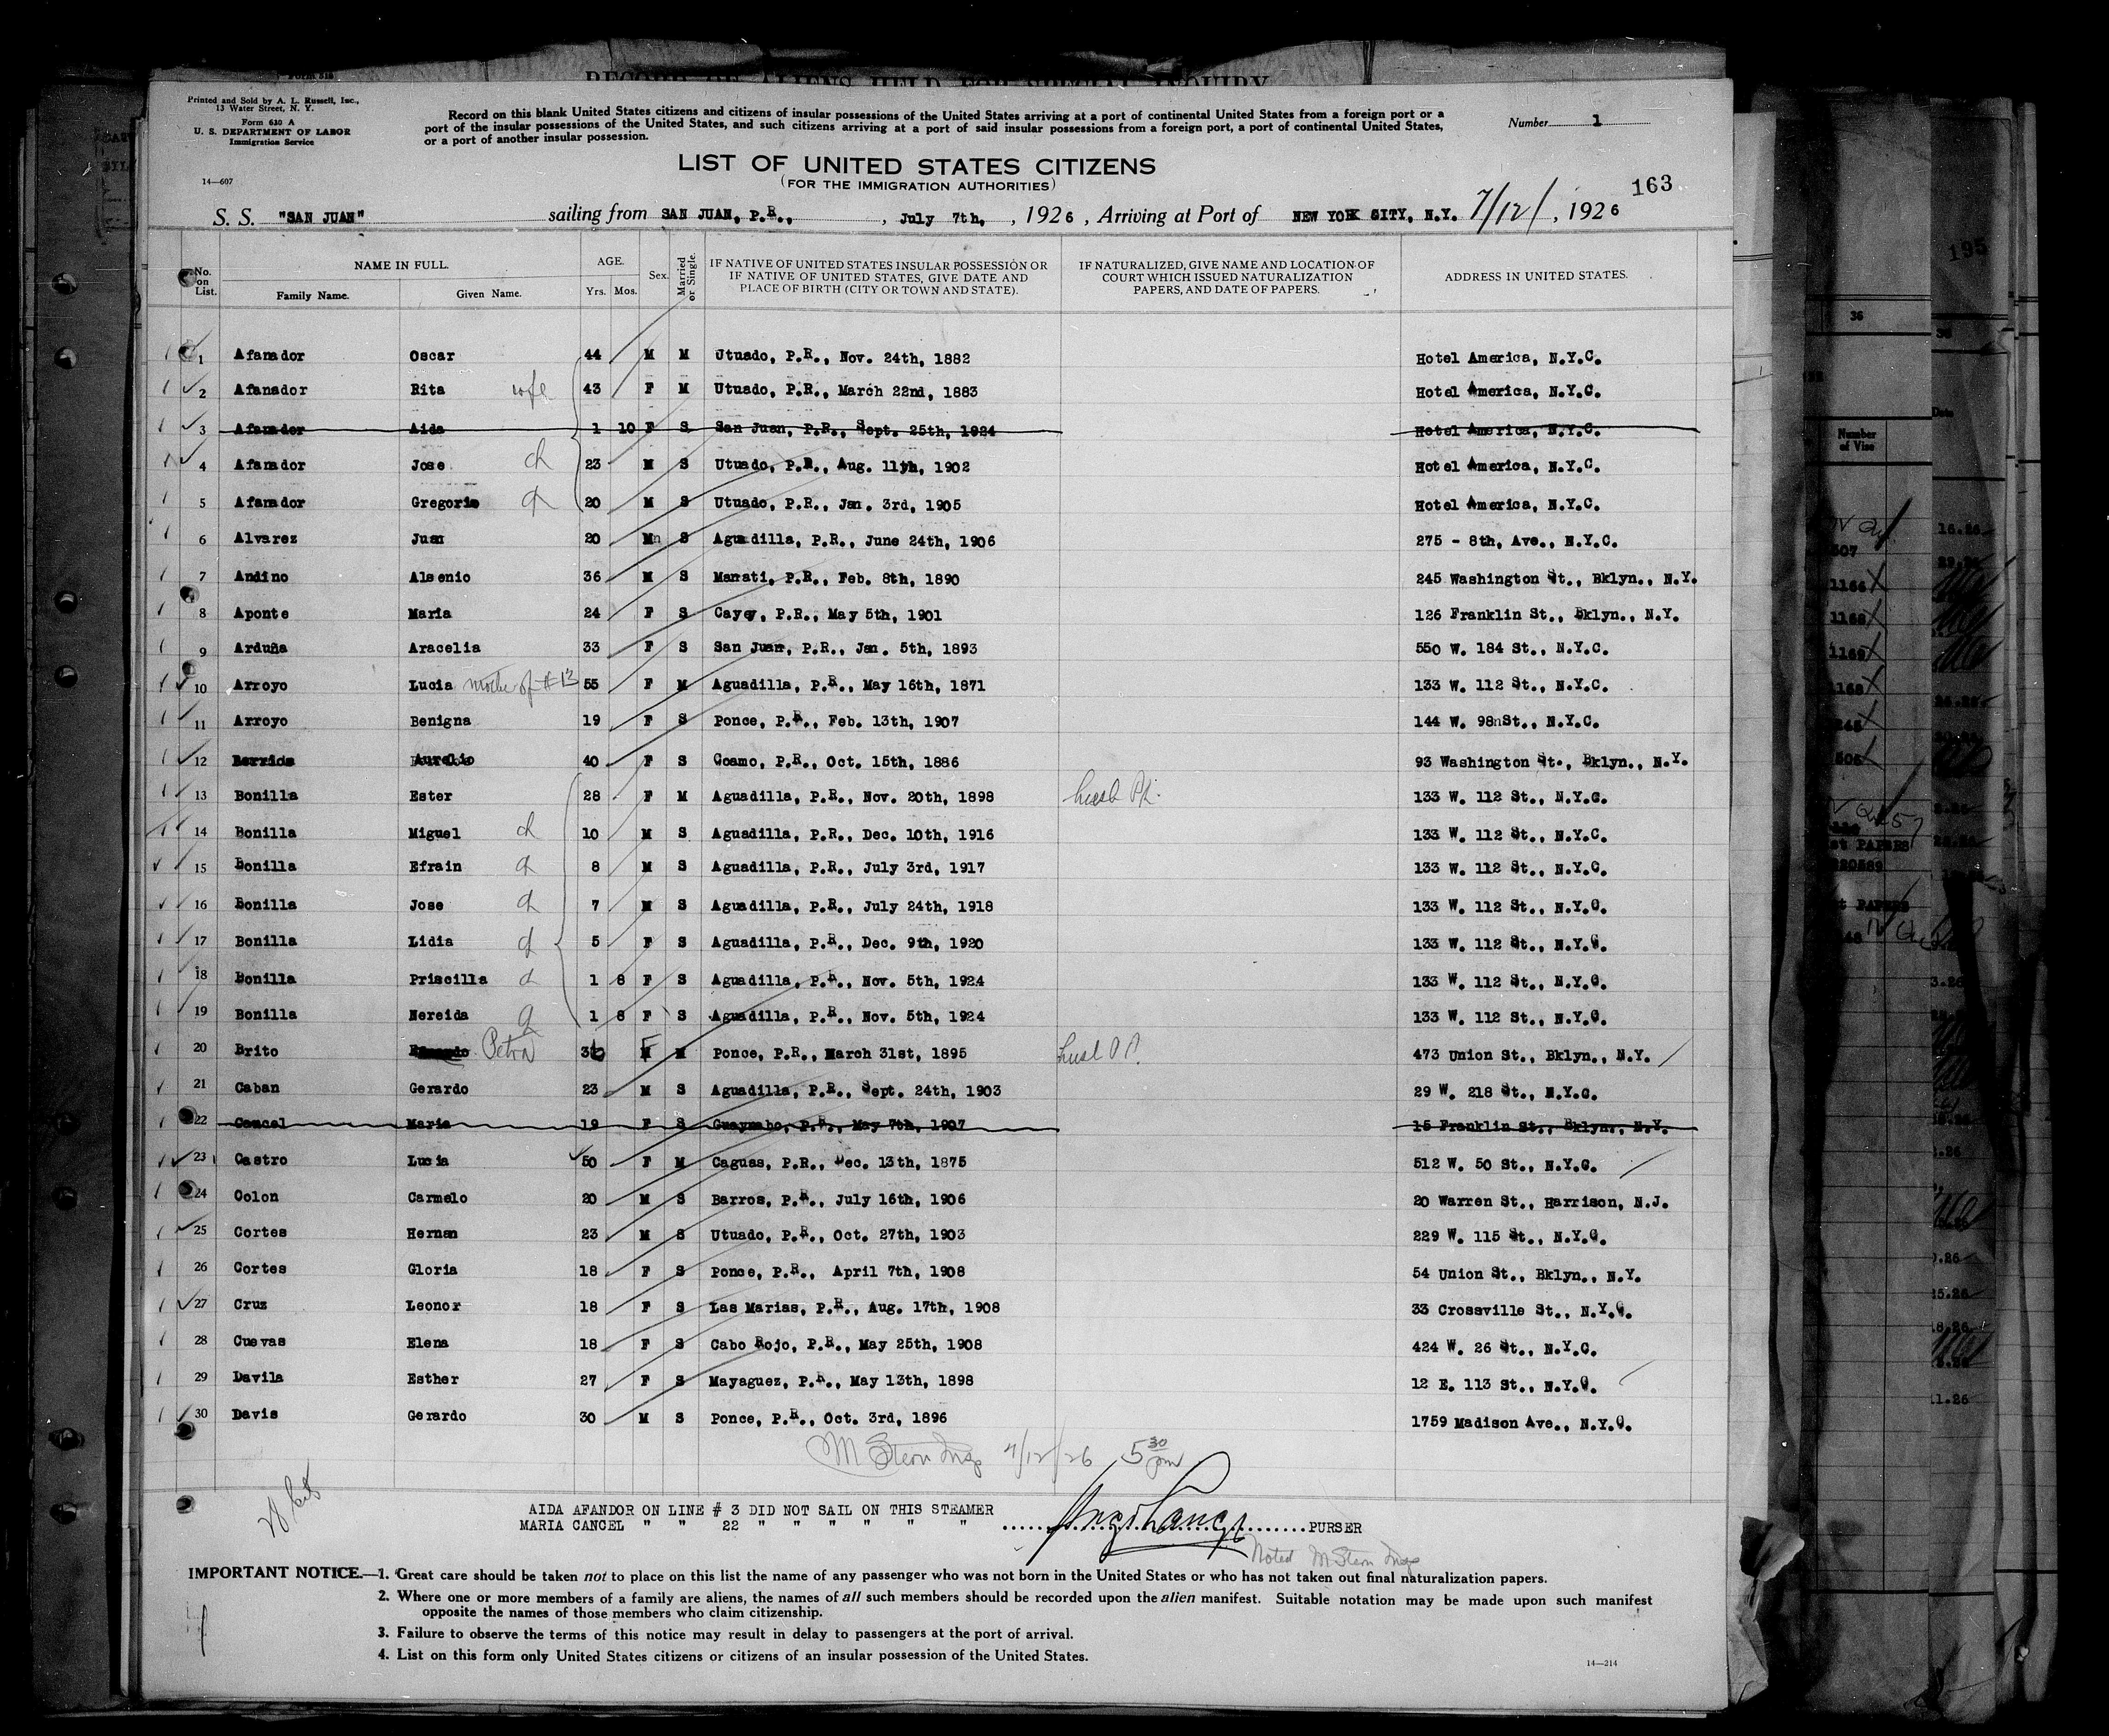 RECORD OF ALIENS HELD FOR SPECIAL INQUIRY
Printed and Sold by A. L. Russell, Inc.,
13 Water Street, N. Y.
Form 630 A
U. S. DEPARTMENT OF LABOR
Immigration Service
14—607
Record on this blank United States citizens and citizens of insular possessions of the United States arriving at a port of continental United States from a foreign port or a
port of the insular possessions of the United States, and such citizens arriving at a port of said insular possessions from a foreign port, a port of continental United States,
or a port of another insular possession.
Number 1
LIST OF UNITED STATES CITIZENS
(FOR THE IMMIGRATION AUTHORITIES)
163
S. S. "SAN JUAN" sailing from SAN JUAN, P.R., , July 7th, , 1926 , Arriving at Port of NEW YORK CITY, N.Y. 7/12/ , 1926
No. on List. NAME IN FULL. Family Name. Given Name. AGE. Yrs. Mos. Sex. Married or Single. IF NATIVE OF UNITED STATES INSULAR POSSESSION OR IF NATIVE OF UNITED STATES, GIVE DATE AND PLACE OF BIRTH (CITY OR TOWN AND STATE). IF NATURALIZED, GIVE NAME AND LOCATION OF COURT WHICH ISSUED NATURALIZATION PAPERS, AND DATE OF PAPERS. ADDRESS IN UNITED STATES.
1 Afanador Oscar 44 M M Utuado, P.R., Nov. 24th, 1882 Hotel America, N.Y.C.
2 Afanador Rita wife 43 F M Utuado, P.R., March 22nd, 1883 Hotel America, N.Y.C.
3 Afanador Aida 1 10 F S San Juan, P.R., Sept. 25th, 1924 Hotel America, N.Y.C.
4 Afanador Jose ch 23 M S Utuado, P.R., Aug. 11th, 1902 Hotel America, N.Y.C.
5 Afanador Gregorio ch 20 M S Utuado, P.R., Jan. 3rd, 1905 Hotel America, N.Y.C.
6 Alvarez Juan 20 M S Aguadilla, P.R., June 24th, 1906 275 - 8th, Ave., N.Y.C.
7 Andino Alsenio 36 M S Manati, P.R., Feb. 8th, 1890 245 Washington St., Bklyn., N.Y.
8 Aponte Maria 24 F S Cayey, P.R., May 5th, 1901 126 Franklin St., Bklyn., N.Y.
9 Arduña Aracelia 33 F S San Juan, P.R., Jan. 5th, 1893 550 W. 184 St., N.Y.C.
10 Arroyo Lucia mother of #13 55 F M Aguadilla, P.R., May 16th, 1871 133 W. 112 St., N.Y.C.
11 Arroyo Benigna 19 F S Ponce, P.R., Feb. 13th, 1907 144 W. 98nSt., N.Y.C.
12 Berrios Aurelio 40 F S Coamo, P.R., Oct. 15th, 1886 93 Washington St., Bklyn., N.Y.
13 Bonilla Ester 28 F M Aguadilla, P.R., Nov. 20th, 1898 husb P.R. 133 W. 112 St., N.Y.C.
14 Bonilla Miguel ch 10 M S Aguadilla, P.R., Dec. 10th, 1916 133 W. 112 St., N.Y.C.
15 Bonilla Efrain ch 8 M S Aguadilla, P.R., July 3rd, 1917 133 W. 112 St., N.Y.C.
16 Bonilla Jose ch 7 M S Aguadilla, P.R., July 24th, 1918 133 W. 112 St., N.Y.C.
17 Bonilla Lidia ch 5 F S Aguadilla, P.R., Dec. 9th, 1920 133 W. 112 St., N.Y.C.
18 Bonilla Priscilla ch 1 8 F S Aguadilla, P.R., Nov. 5th, 1924 133 W. 112 St., N.Y.C.
19 Bonilla Nereida ch 1 8 F S Aguadilla, P.R., Nov. 5th, 1924 133 W. 112 St., N.Y.C.
20 Brito Petra F M Ponce, P.R., March 31st, 1895 husb P.R. 473 Union St., Bklyn., N.Y.
21 Caban Gerardo 23 M S Aguadilla, P.R., Sept. 24th, 1903 29 W. 218 St., N.Y.C.
22 Cancel Maria 19 F S Guaynabo, P.R., May 7th, 1907 15 Franklin St., Bklyn., N.Y.
23 Castro Lucia 50 F M Caguas, P.R., Dec. 13th, 1875 512 W. 50 St., N.Y.C.
24 Colon Carmelo 20 M S Barros, P.R., July 16th, 1906 20 Warren St., Harrison, N.J.
25 Cortes Hernan 23 M S Utuado, P.R., Oct. 27th, 1903 229 W. 115 St., N.Y.C.
26 Cortes Gloria 18 F S Ponce, P.R., April 7th, 1908 54 Union St., Bklyn., N.Y.
27 Cruz Leonor 18 F S Las Marias, P.R., Aug. 17th, 1908 33 Crossville St., N.Y.C.
28 Cuevas Elena 18 F S Cabo Rojo, P.R., May 25th, 1908 424 W. 26 St., N.Y.C.
29 Davila Esther 27 F S Mayaguez, P.R., May 13th, 1898 12 E. 113 St., N.Y.C.
30 Davis Gerardo 30 M S Ponce, P.R., Oct. 3rd, 1896 1759 Madison Ave., N.Y.C.
M Stern Insp 7/12/26 5 30 pm
AIDA AFANDOR ON LINE # 3 DID NOT SAIL ON THIS STEAMER
MARIA CANCEL " " 22 " " " " " " PURSER
Noted M Stern Insp
IMPORTANT NOTICE.—1. Great care should be taken not to place on this list the name of any passenger who was not born in the United States or who has not taken out final naturalization papers.
2. Where one or more members of a family are aliens, the names of all such members should be recorded upon the alien manifest. Suitable notation may be made upon such manifest
opposite the names of those members who claim citizenship.
3. Failure to observe the terms of this notice may result in delay to passengers at the port of arrival.
4. List on this form only United States citizens or citizens of an insular possession of the United States.
14—214
195
36
Number
of Visa
Date